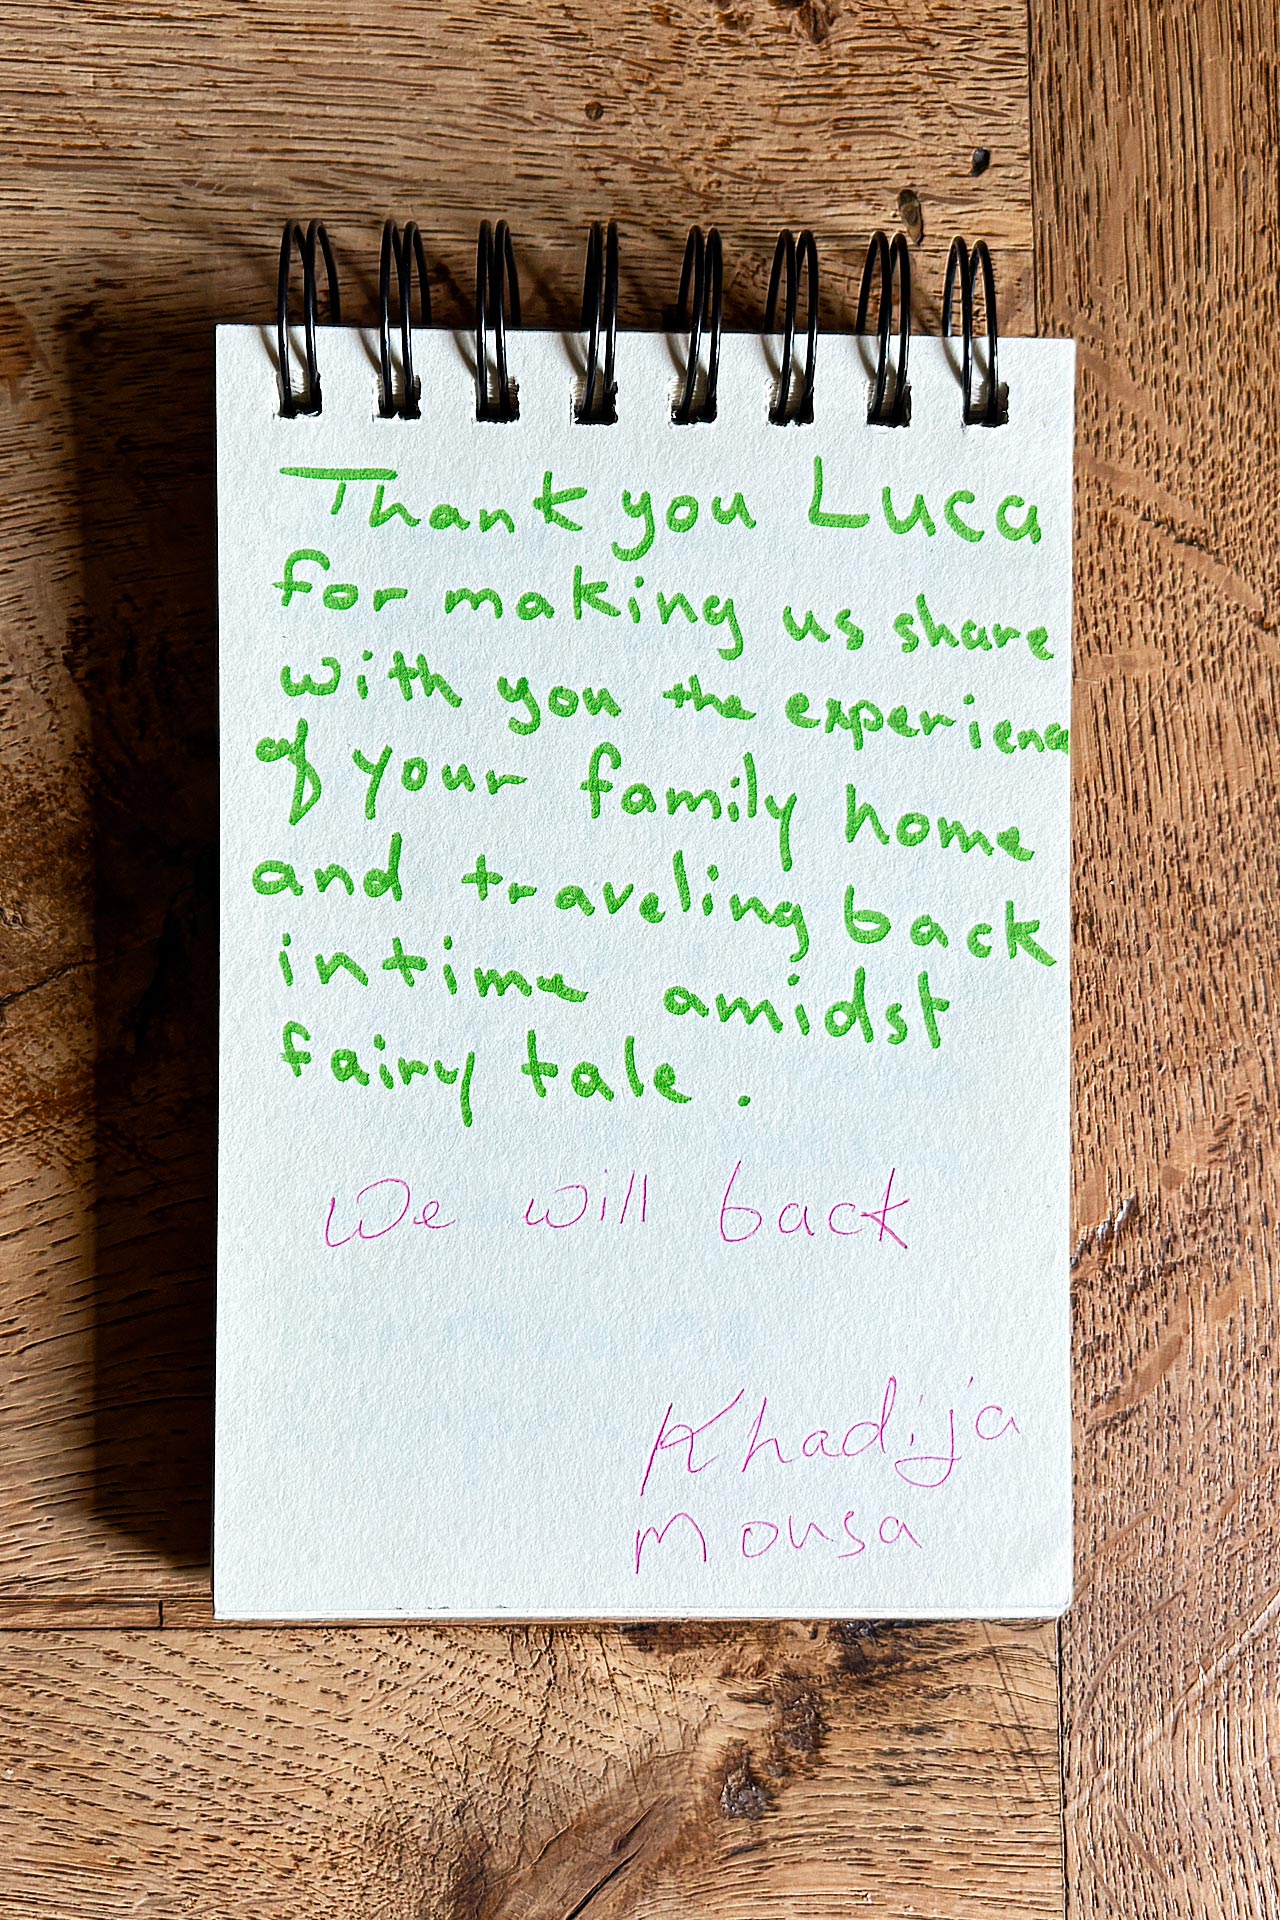 Thank you Luca
for making us share
with you the experience
of your family home
and traveling back
in time amidst
fairy tale.
We will back
Khadija
Mousa